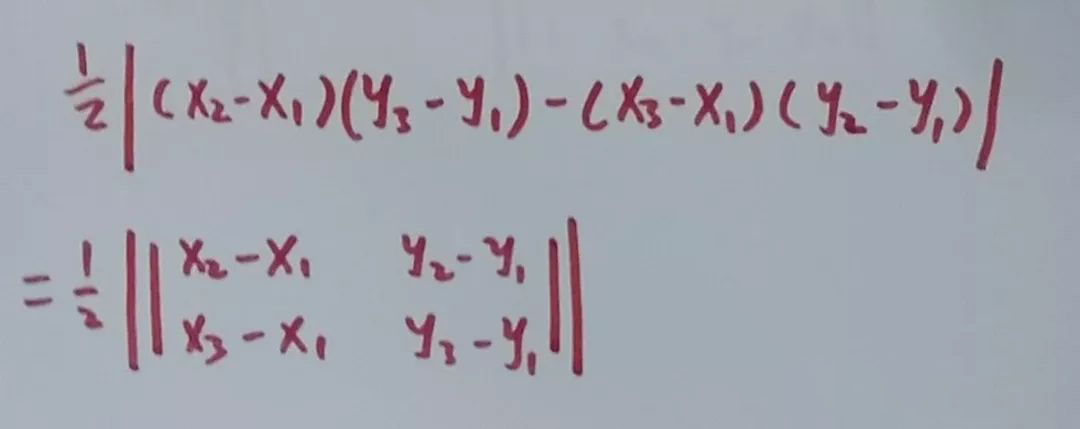 ½|(x₂-x₁)(y₃-y₁)-(x₃-x₁)(y₂-y₁)|
=½||x₂-x₁ y₂-y₁
x₃-x₁ y₃-y₁||